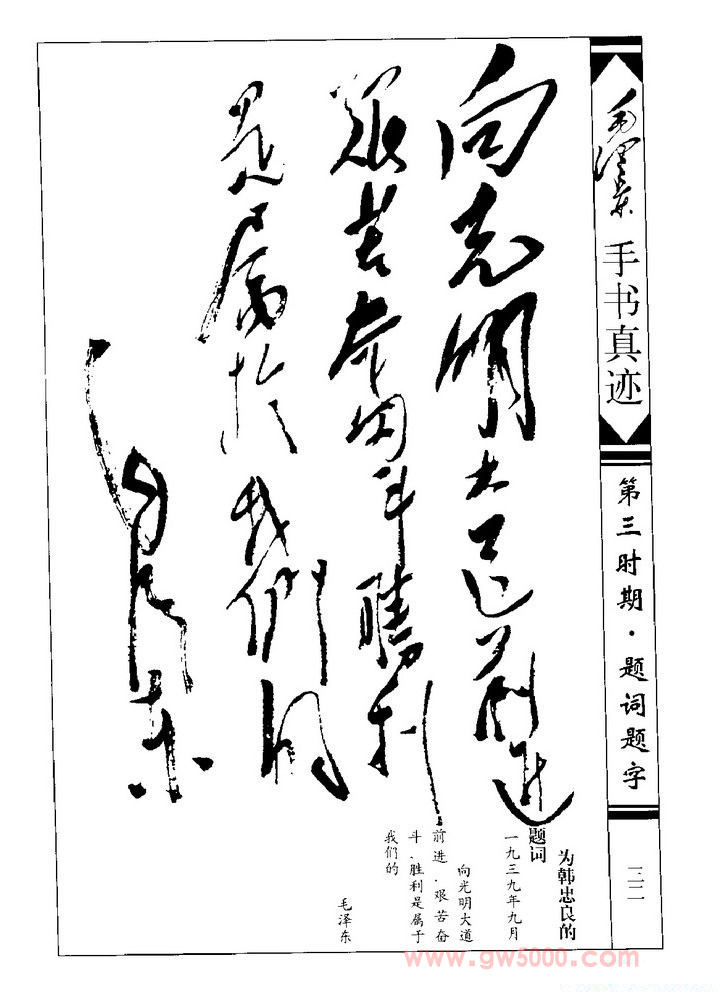 毛泽东
手书真迹
第三时期·题词题字
三二
向光明大道前进
艰苦奋鬥勝利
是属於我們的
毛泽东
为韩忠良的
题词
一九三九年九月
向光明大道
前进．艰苦奋
斗．胜利是属于
我们的
毛泽东
www.gw5000.com